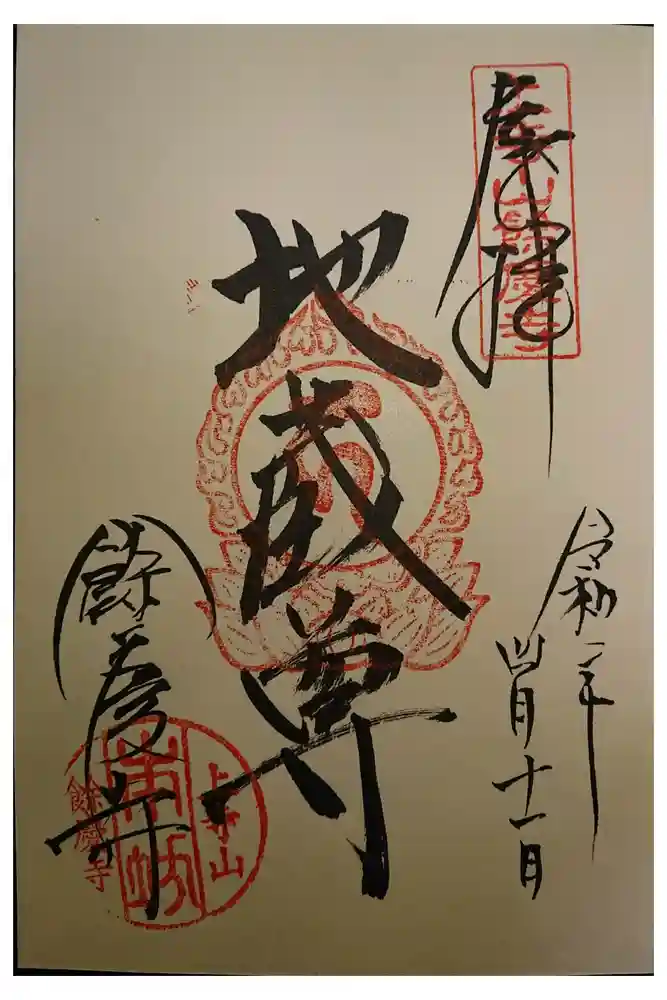 奉拝
上寺山餘慶寺
令和二年
四月十一日
地蔵尊
餘慶寺
上寺山
本坊
餘慶寺